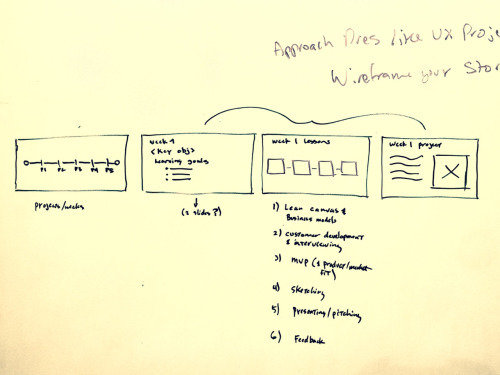 Approach Pres like UX Proje
Wireframe your Stor
P1 P2 P3 P4 P5
projects/weeks
week 1
<key obj>
learning goals
(2 slides?)
week 1 lessons
1) Lean canvas &
Business models
2) customer development
& interviewing
3) MVP (& product/market
fit)
4) sketching
5) presenting/pitching
6) Feedback
week 1 project